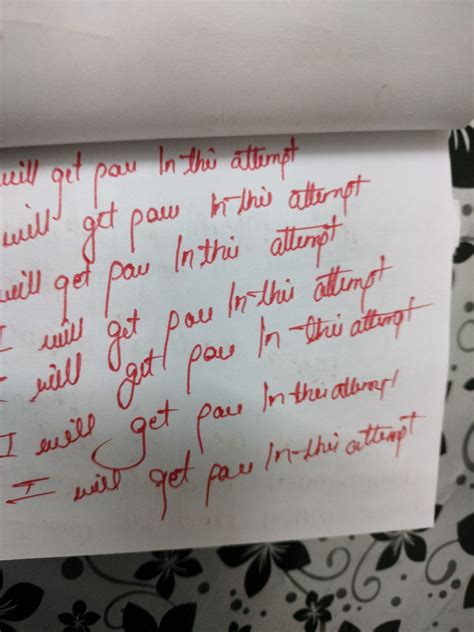 will get pass In this attempt
will get pass In this attempt
will get pass In this attempt
I will get pass In this attempt
I will get pass In this attempt
I will get pass In this attempt
I will get pass In this attempt